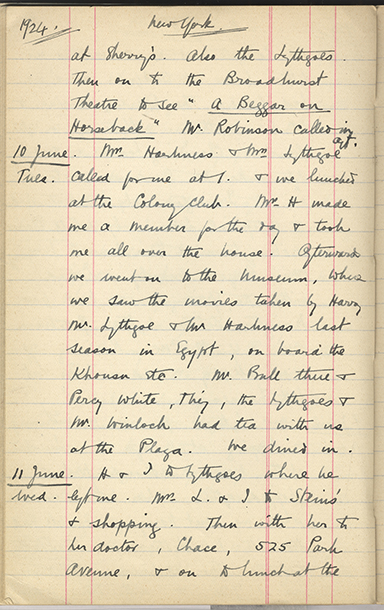 1924. New York.
at Sherry's. Also the Lythgoes.
Then on to the Broadhurst
Theatre to see "A Beggar on
Horseback" Mr. Robinson called in aft.
10 June. Mrs. Harkness & Mrs. Lythgoe
Tues. called for me at 1. & we lunched
at the Colony Club. Mrs. H made
me a member for the day & took
me all over the house. Afterwards
we went on to the Museum, where
we saw the movies taken by Harry
Mr. Lythgoe & Mr Harkness last
season in Egypt, on board the
Khonsu etc. Mr. Bull there &
Percy White, they, the Lythgoes &
Mr Winlock had tea with us
at the Plaza. We dined in.
11 June. H & I to Lythgoes where he
Wed. left me. Mrs L. & I to Steins'
& shopping. Then with her to
her doctor, Chace, 525 Park
Avenue, & on to lunch at the